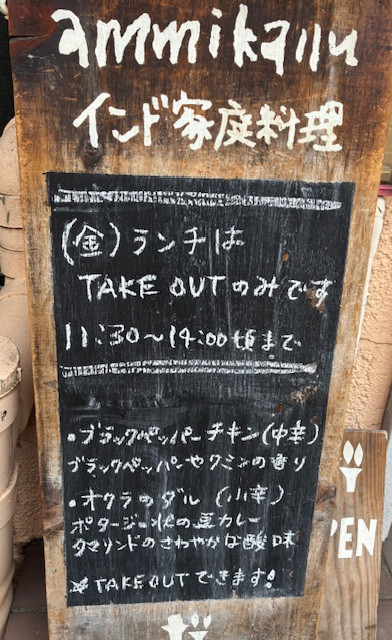 ammikallu
インド家庭料理
(金)ランチは
TAKE OUTのみです
11:30～14:00頃まで
・ブラックペッパーチキン(中辛)
ブラックペッパーやクミンの香り
・オクラのダル(小辛)
ポタージュ状の豆カレー
タマリンドのさわやかな酸味
☆TAKEOUTできます!
PEN